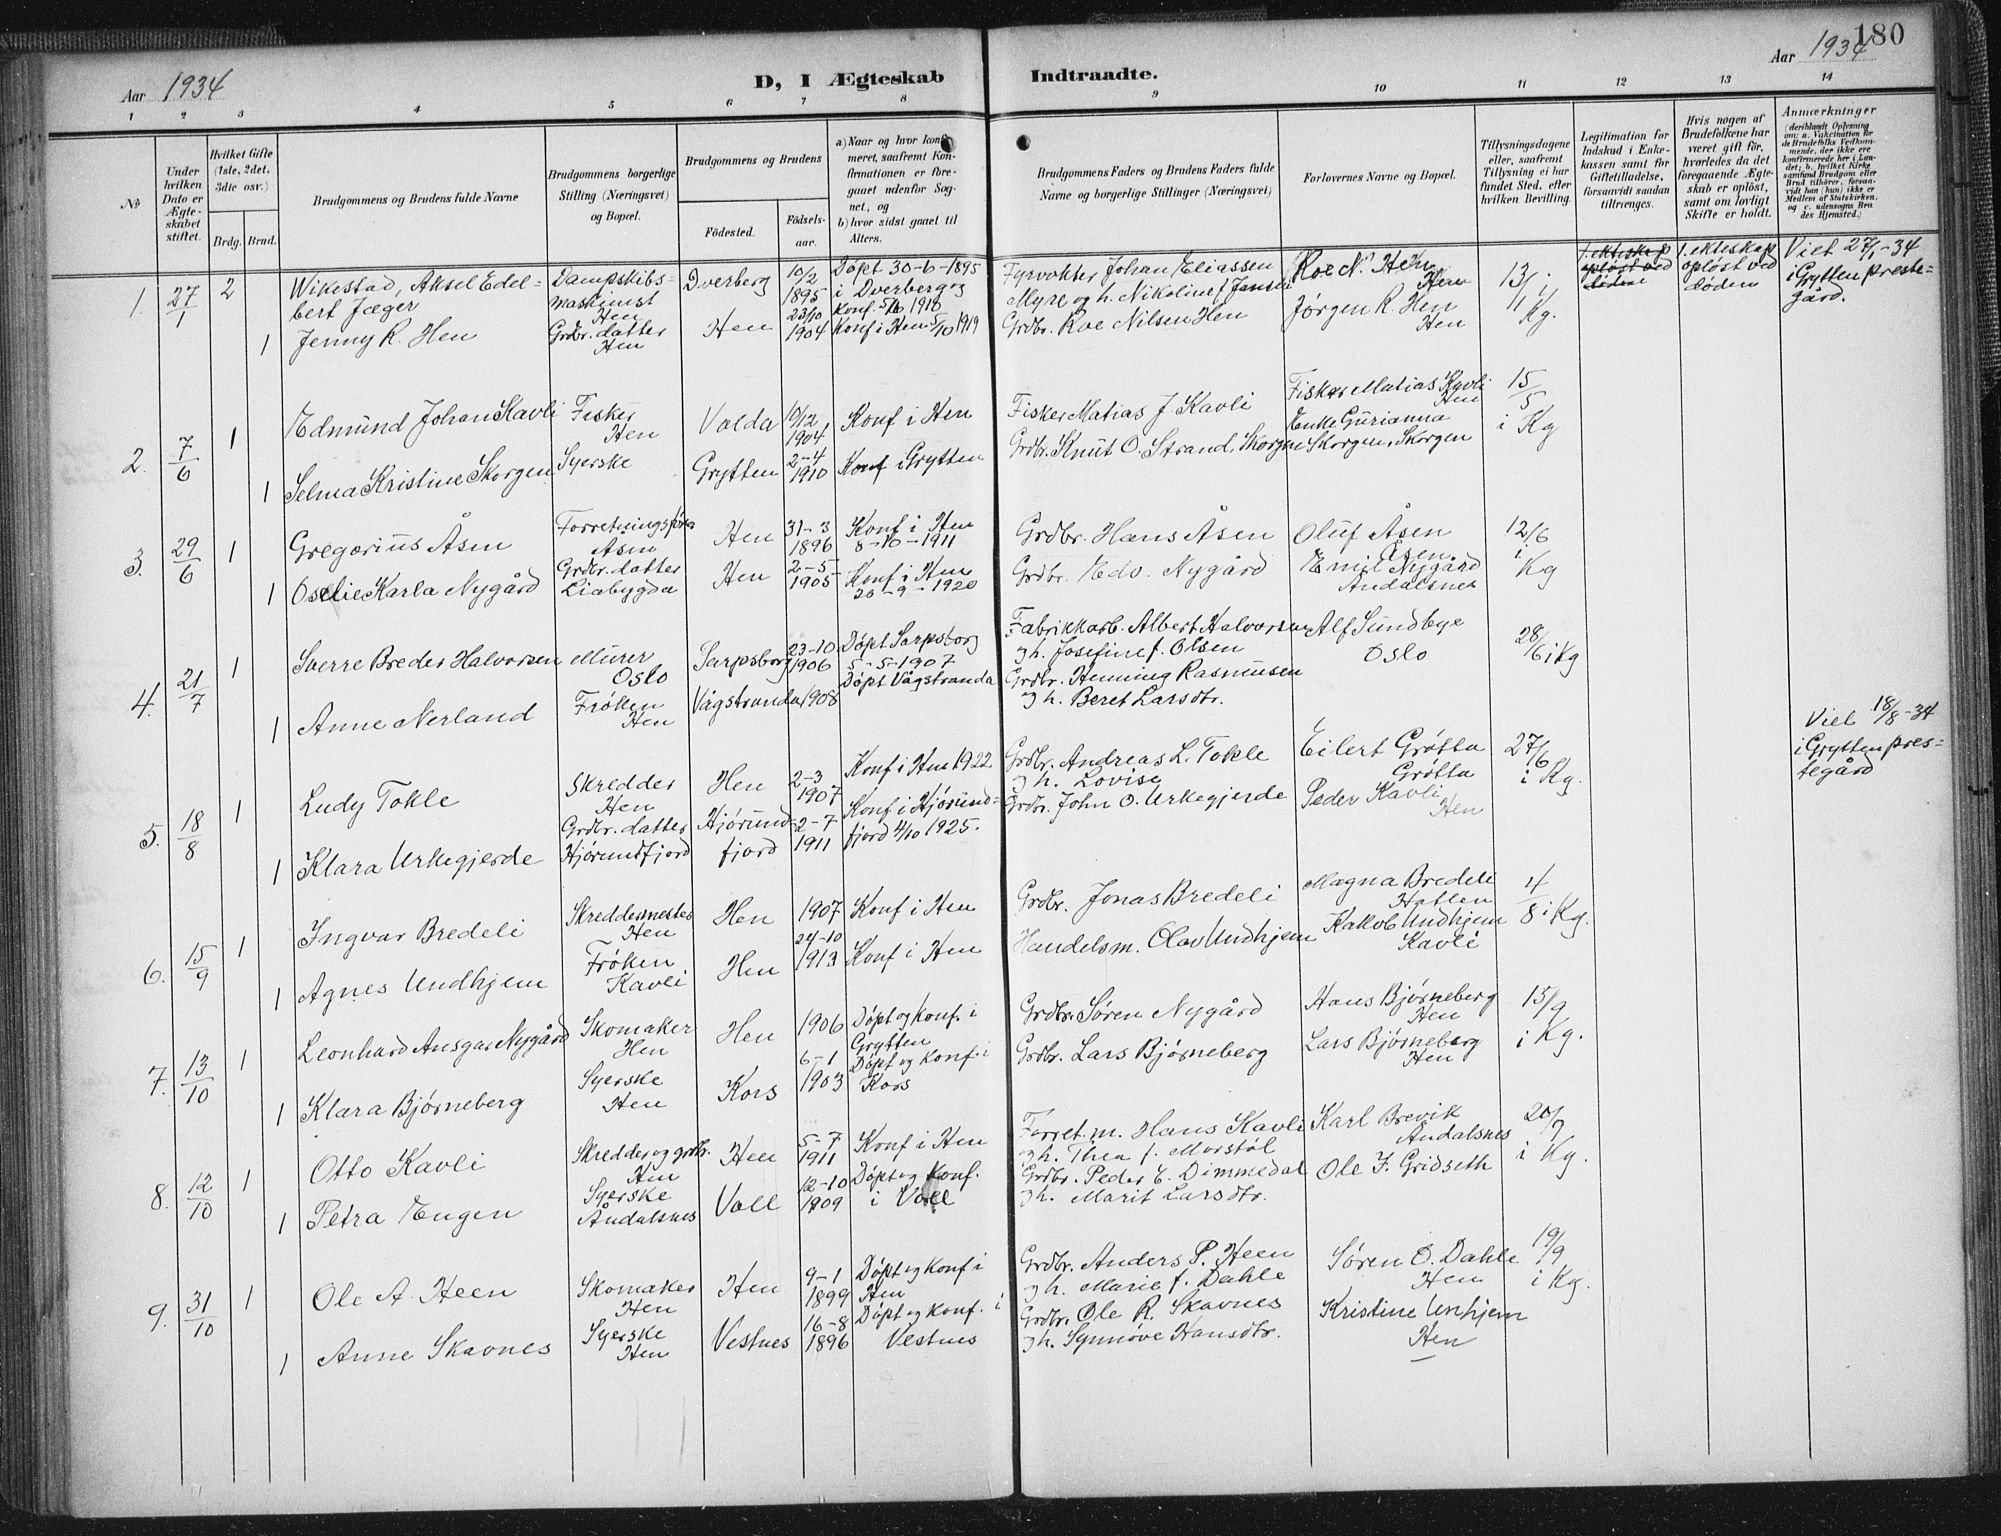 180
Aar 1934
D, I Ægteskab Indtraadte.
Aar 1934
1 2 3 4 5 6 7 8 9 10 11 12 13 14
No
Under hvilken Dato er Ægteskabet stiftet.
Hvilket Gifte (1ste, 2det, 3die osv.)
Brdg. Brud.
Brudgommens og Brudens fulde Navne
Brudgommens borgerlige Stilling (Næringsvei) og Bopæl.
Brudgommens og Brudens
Fødested.
Fødselsaar.
a) Naar og hvor konfirmeret, saafremt Konfirmationen er foregaaet udenfor Sognet, og
b) hvor sidst gaaet til Alters.
Brudgommens Faders og Brudens Faders fulde Navne og borgerlige Stillinger (Næringsvei)
Forlovernes Navne og Bopæl.
Tillysningsdagene eller, saafremt Tillysning ei har fundet Sted, efter hvilken Bevilling.
Legitimation for Indskud i Enkekassen samt for Giftetilladelse, forsaavidt saadan tiltrænges.
Hvis nogen af Brudefolkene har været gift før, hvorledes da det foregaaende Ægteskab er opløst, samt om lovligt Skifte er holdt.
Anmærkninger
(deriblandt Oplysning om: a. Vakcination for de Brudefolks Vedkommende, der ikke ere konfirmerede her i Landet; b. hvilket Kirkesamfund Brudgom eller Brud tilhører, forsaavidt han (hun) ikke er Medlem af Statskirken, og c. udensogns Brudes Hjemsted.)
1. 27/1 2 Wikestad, Aksel Edelbert Jæger Dampskibsmaskinist Hen Dverberg 10/2 1895 Døpt 30-6-1895 i Dverberg og Konf 5/6 1910 Fyrvokter Johan Eliassen Myre og h. Nikoline f. Jansen Roe N. Hen Hen 13/1 i Kg. 1. ekteskap opløst ved døden 1. ekteskap opløst ved døden Viet 27/1-34 i Grytten prestegård.
1 Jenny R. Hen Grdbr. datter Hen Hen 23/10 1904 Konf i Hen 5/10 1919 Grdbr. Roe Nilsen Hen Jørgen R. Hen Hen
2. 7/6 1 Edmund Johan Kavli Fisker Hen Valda 10/12 1904 Konf i Hen Fisker Matias J. Kavli Fisker Matias Kavli Hen 15/5 i Kg
1 Selma Kristine Skorgen Syerske Grytten 2-4 1910 Konf i Grytten Grdbr. Knut O. Strand, Skorgen Enke Gurianna Skorgen, Skorgen
3. 29/6 1 Gregorius Åsen Forretningsfører Åsen Hen 31-3 1896 Konf i Hen 8-10-1911 Grdbr. Hans Åsen Oluf Åsen Åsen 12/6 i Kg
1 Oselie Karla Nygård Grdbr. datter Liabygda Hen 2-5-1905 Konf i Hen 20-9-1920 Grdbr. Edv. Nygård Emil Nygård Åndalsnes
4. 21/7 1 Sverre Breder Halvorsen Murer Oslo Sarpsborg 23-10 1906 Døpt Sarpsborg 5-5-1907 Fabrikkarb. Albert Halvorsen og h. Josefine f. Olsen Alf Sundbye Oslo 28/6 i Kg
1 Anne Nerland Frøken Hen Vågstranda 1908 Døpt Vågstranda Grdbr. Henning Rasmussen og h. Beret Larsdtr.
5. 18/8 1 Ludy Tokle Skredder Hen Hen 2-3 1907 Konf i Hen 1922 Grdbr. Andreas L. Tokle og h. Lovise Eilert Grøtta Grøtta 27/6 i Kg. Viet 18/8-34 i Grytten prestegård
1 Klara Urkegjerde Grdbr. datter Hjørundfjord Hjørundfjord 2-7 1911 Konf i Hjørundfjord 4/10 1925. Grdbr. John O. Urkegjerde Peder Kavli Hen
6. 15/9 1 Ingvar Bredeli Skreddermester Hen Hen 1907 Konf i Hen Grdbr. Jonas Bredeli Magna Bredeli Hatlen 4/8 i Kg.
1 Agnes Undhjem Frøken Kavli Hen 24-10 1913 Konf i Hen Handelsm. Olav Undhjem Kakob Undhjem Kavli
7. 13/10 1 Leonhard Ansgar Nygård Skomaker Hen Hen 1906 Døpt og Konf. i Grytten Grdbr. Søren Nygård Hans Bjørneberg Hen 15/9 i Kg.
1 Klara Bjørneberg Syerske Hen Kors 6-1 1903 Døpt og konf. i Kors Grdbr. Lars Bjørneberg Lars Bjørneberg Hen
8. 12/10 1 Otto Kavli Skredder og grdbr. Hen Hen 5-7 1911 Konf i Hen Forret.m. Hans Kavli og h. Thea f. Morstøl Karl Brevik Åndalsnes 20/9 i Kg.
1 Petra Engen Syerske Åndalsnes Voll 12-10 1909 Døpt og konf. i Voll Grdbr. Peder E. Dimmedal og h. Marit Larsdtr. Ole J. Gridseth
9. 31/10 1 Ole A. Heen Skomaker Hen Hen 9-1 1899 Døpt og konf i Hen Grdbr. Anders P. Heen og h. Marie f. Dahle Søren O. Dahle Hen 19/9 i Kg.
1 Anne Skavnes Syerske Hen Vestnes 16-8 1896 Døpt og konf. i Vestnes Grdbr. Ole R. Skavnes og h. Synnøve Hansdtr. Kristine Unhjem Hen